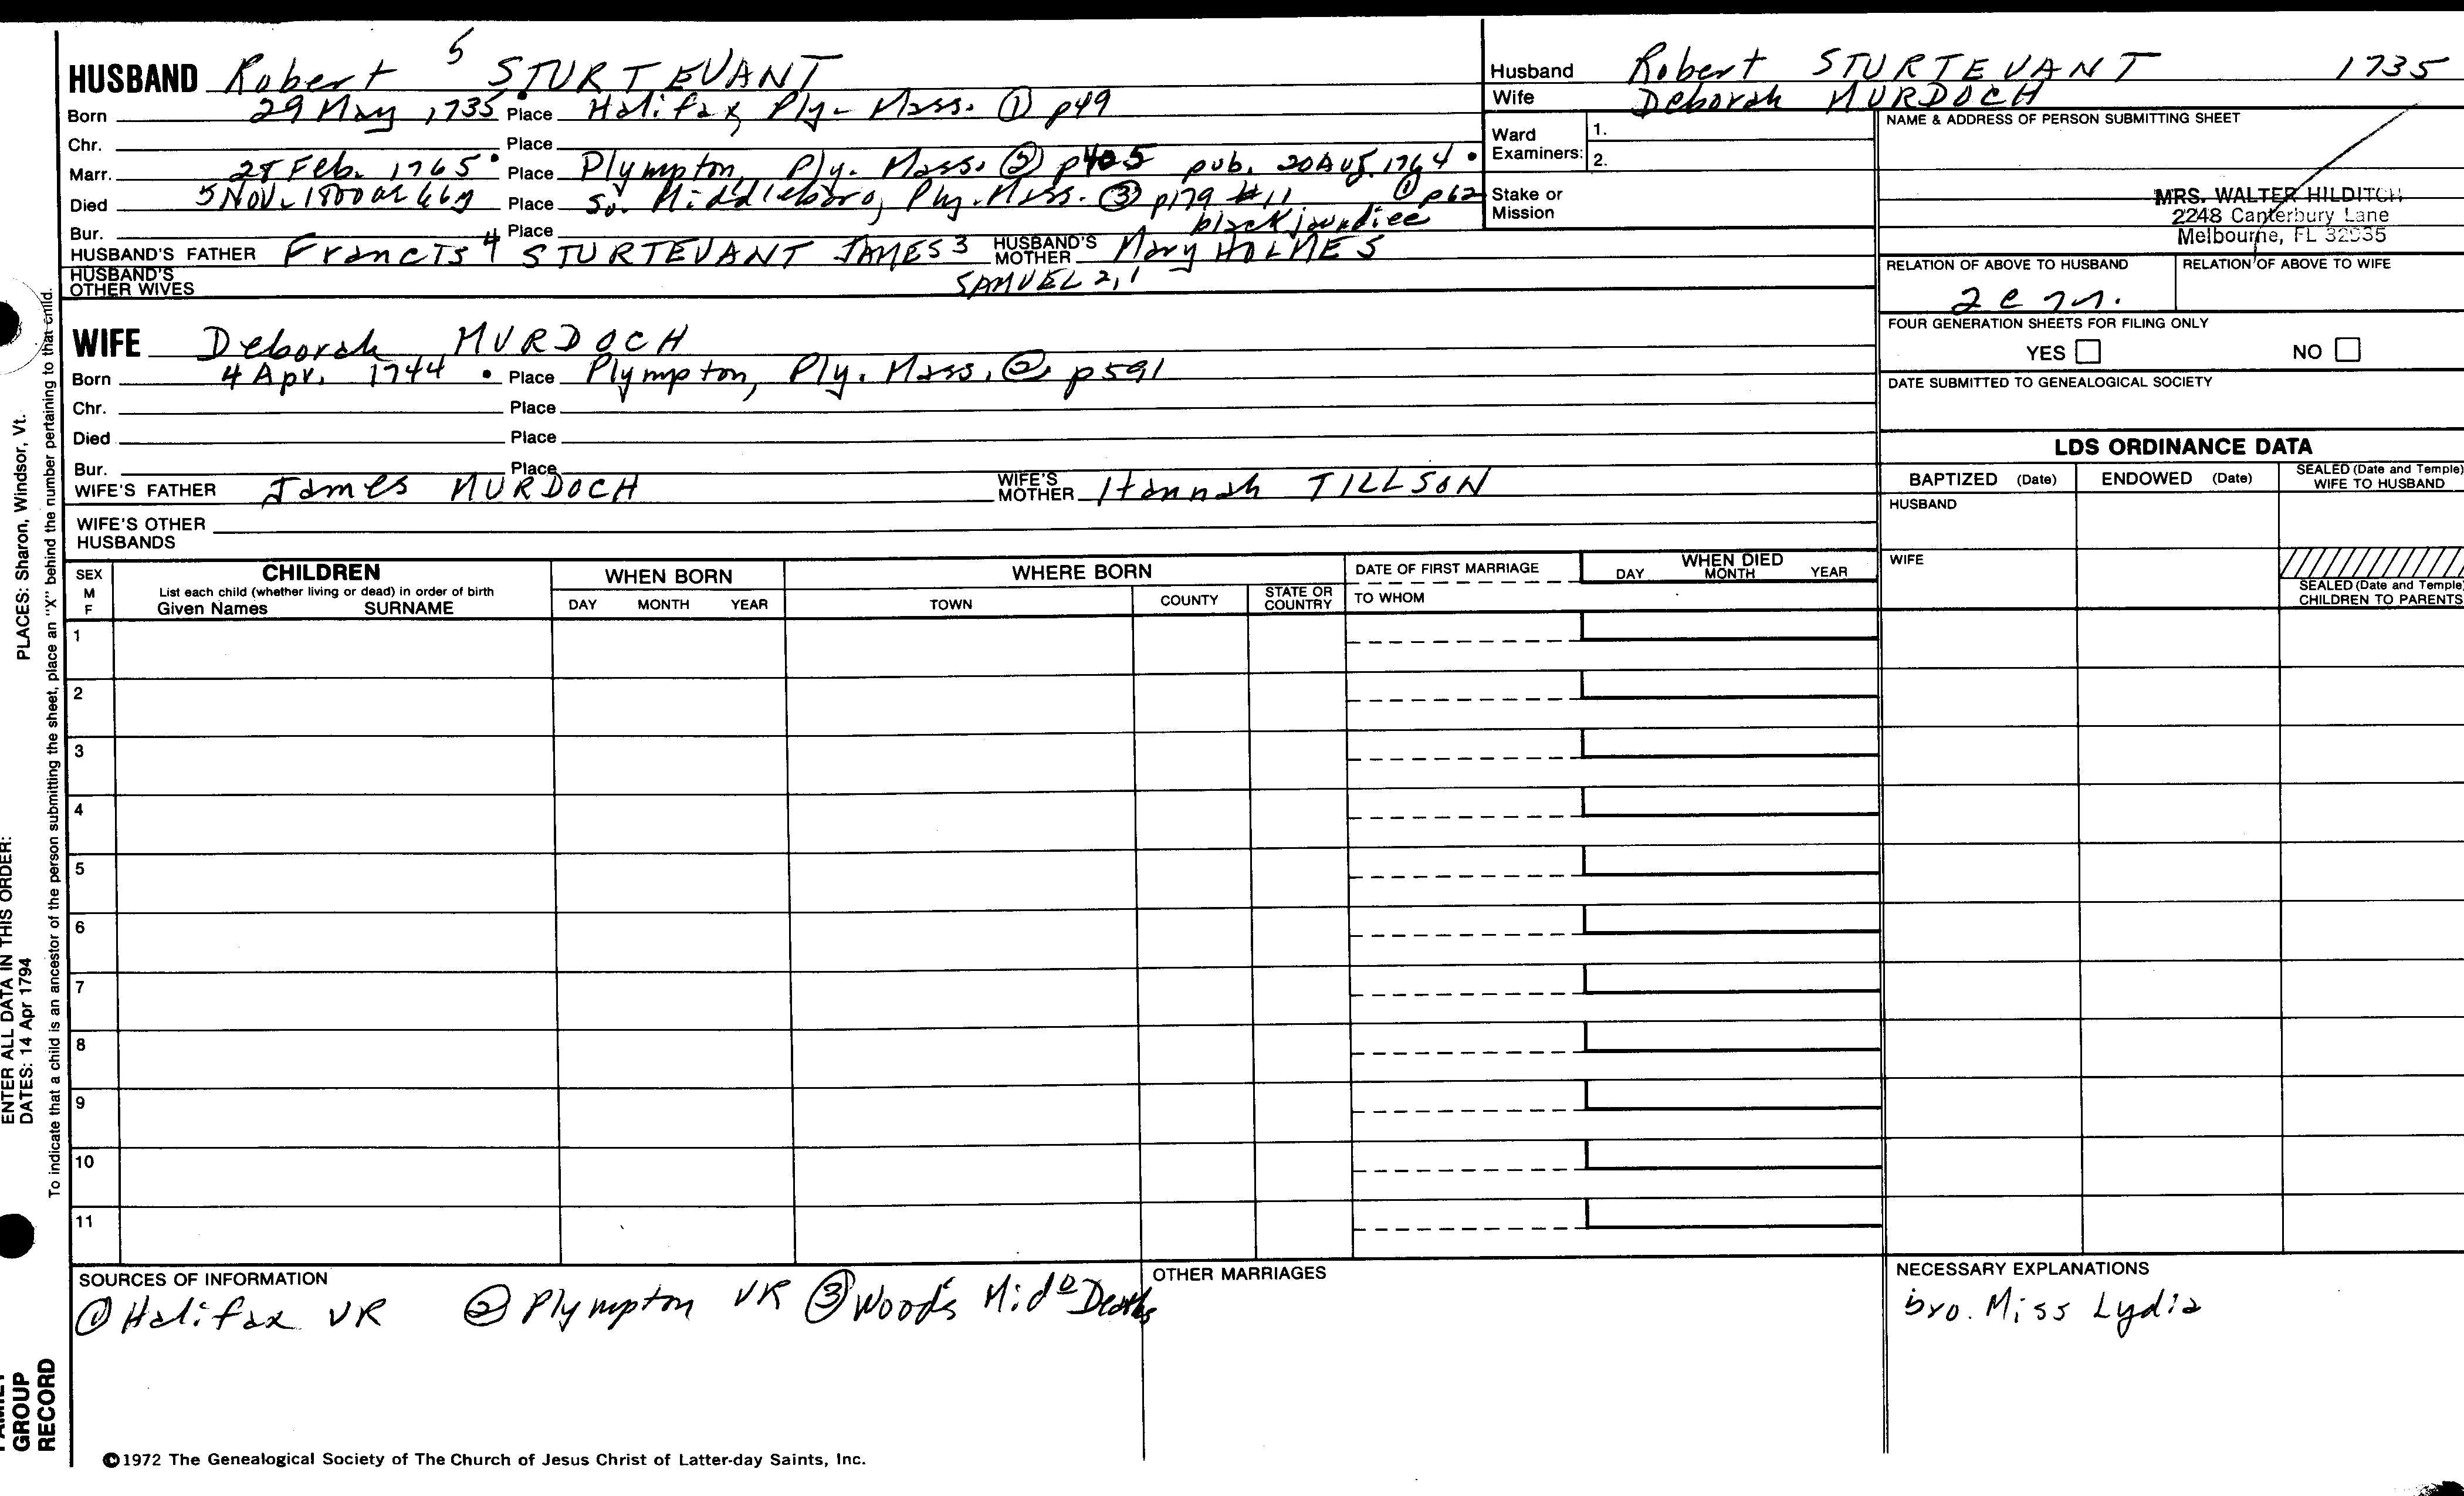 HUSBAND Robert 5 STURTEVANT
Born 29 May 1735 Place Halifax, Ply- Mass. ① p49
Chr. Place
Marr. 28 Feb. 1765 Place Plympton, Ply. Mass. ② p405 pub. 20 Aug. 1764 ① p62
Died 5 Nov. 1800 ae 66y Place So. Middleboro, Ply. Mass. ③ p179 #11
Bur. Place black jaundice
HUSBAND'S FATHER Francis 4 STURTEVANT JAMES 3 HUSBAND'S MOTHER Mary HOLMES
HUSBAND'S OTHER WIVES SAMUEL 2,1
Husband Robert STURTEVANT 1735
Wife Deborah MURDOCH
Ward Examiners: 1.
2.
Stake or Mission
NAME & ADDRESS OF PERSON SUBMITTING SHEET
MRS. WALTER HILDITCH
2248 Canterbury Lane
Melbourne, FL 32935
RELATION OF ABOVE TO HUSBAND RELATION OF ABOVE TO WIFE
FOUR GENERATION SHEETS FOR FILING ONLY
YES NO
DATE SUBMITTED TO GENEALOGICAL SOCIETY
WIFE Deborah MURDOCH
Born 4 Apr. 1744 Place Plympton, Ply. Mass. ② p591
Chr. Place
Died Place
Bur. Place
WIFE'S FATHER James MURDOCH WIFE'S MOTHER Hannah TILLSON
WIFE'S OTHER HUSBANDS
LDS ORDINANCE DATA
BAPTIZED (Date) ENDOWED (Date) SEALED (Date and Temple) WIFE TO HUSBAND
HUSBAND
WIFE
SEALED (Date and Temple) CHILDREN TO PARENTS
SEX M F
CHILDREN
List each child (whether living or dead) in order of birth
Given Names SURNAME
WHEN BORN
DAY MONTH YEAR
WHERE BORN
TOWN COUNTY STATE OR COUNTRY
DATE OF FIRST MARRIAGE
TO WHOM
WHEN DIED
DAY MONTH YEAR
1
2
3
4
5
6
7
8
9
10
11
SOURCES OF INFORMATION
① Halifax VR ② Plympton VR ③ Wood's Mid° Deaths
OTHER MARRIAGES
NECESSARY EXPLANATIONS
bro. Miss Lydia
©1972 The Genealogical Society of The Church of Jesus Christ of Latter-day Saints, Inc.
GROUP
RECORD
ENTER ALL DATA IN THIS ORDER:
DATES: 14 Apr 1794
PLACES: Sharon, Windsor, Vt.
To indicate that a child is an ancestor of the person submitting the sheet, place an "X" behind the number pertaining to that child.